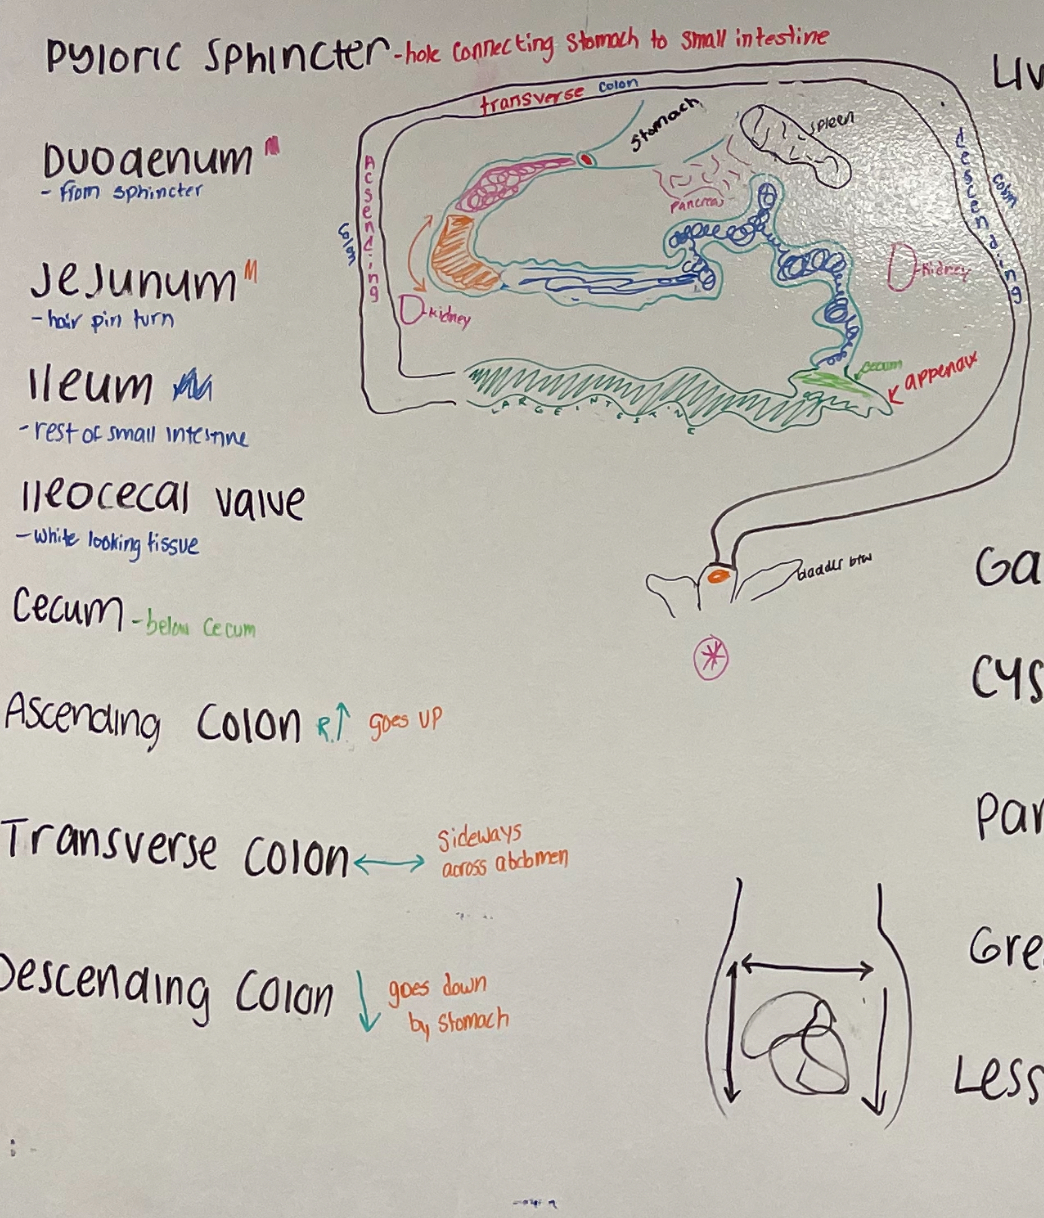 Pyloric Sphincter - hole connecting stomach to small intestine
Liv
transverse colon
Stomach
spleen
Duodenum
- from sphincter
Acsending
descending
colon
pancreas
kidney
Jejunum
- hair pin turn
kidney
Ileum
- rest of small intestine
cecum
appendix
LARGE INTESTINE
Ileocecal valve
- white looking tissue
bladder btw
Ga
Cecum - below cecum
Cys
Ascending Colon R↑ goes up
Transverse colon ↔ sideways
across abdomen
Par
Gre
Descending colon ↓ goes down
by stomach
Less